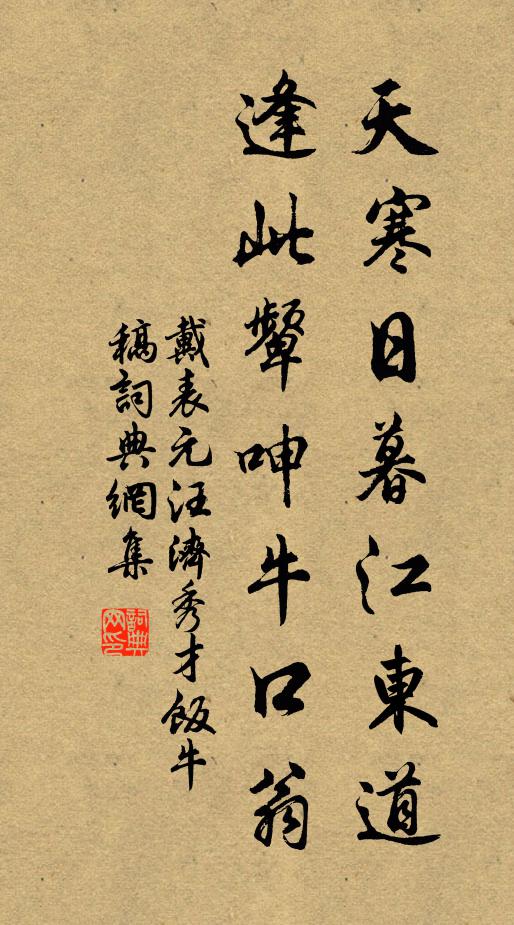 天寒日暮江東道
逢此顰呻牛口翁
戴表元汪濟秀才飯牛
稿詞典網集
詞典
网印